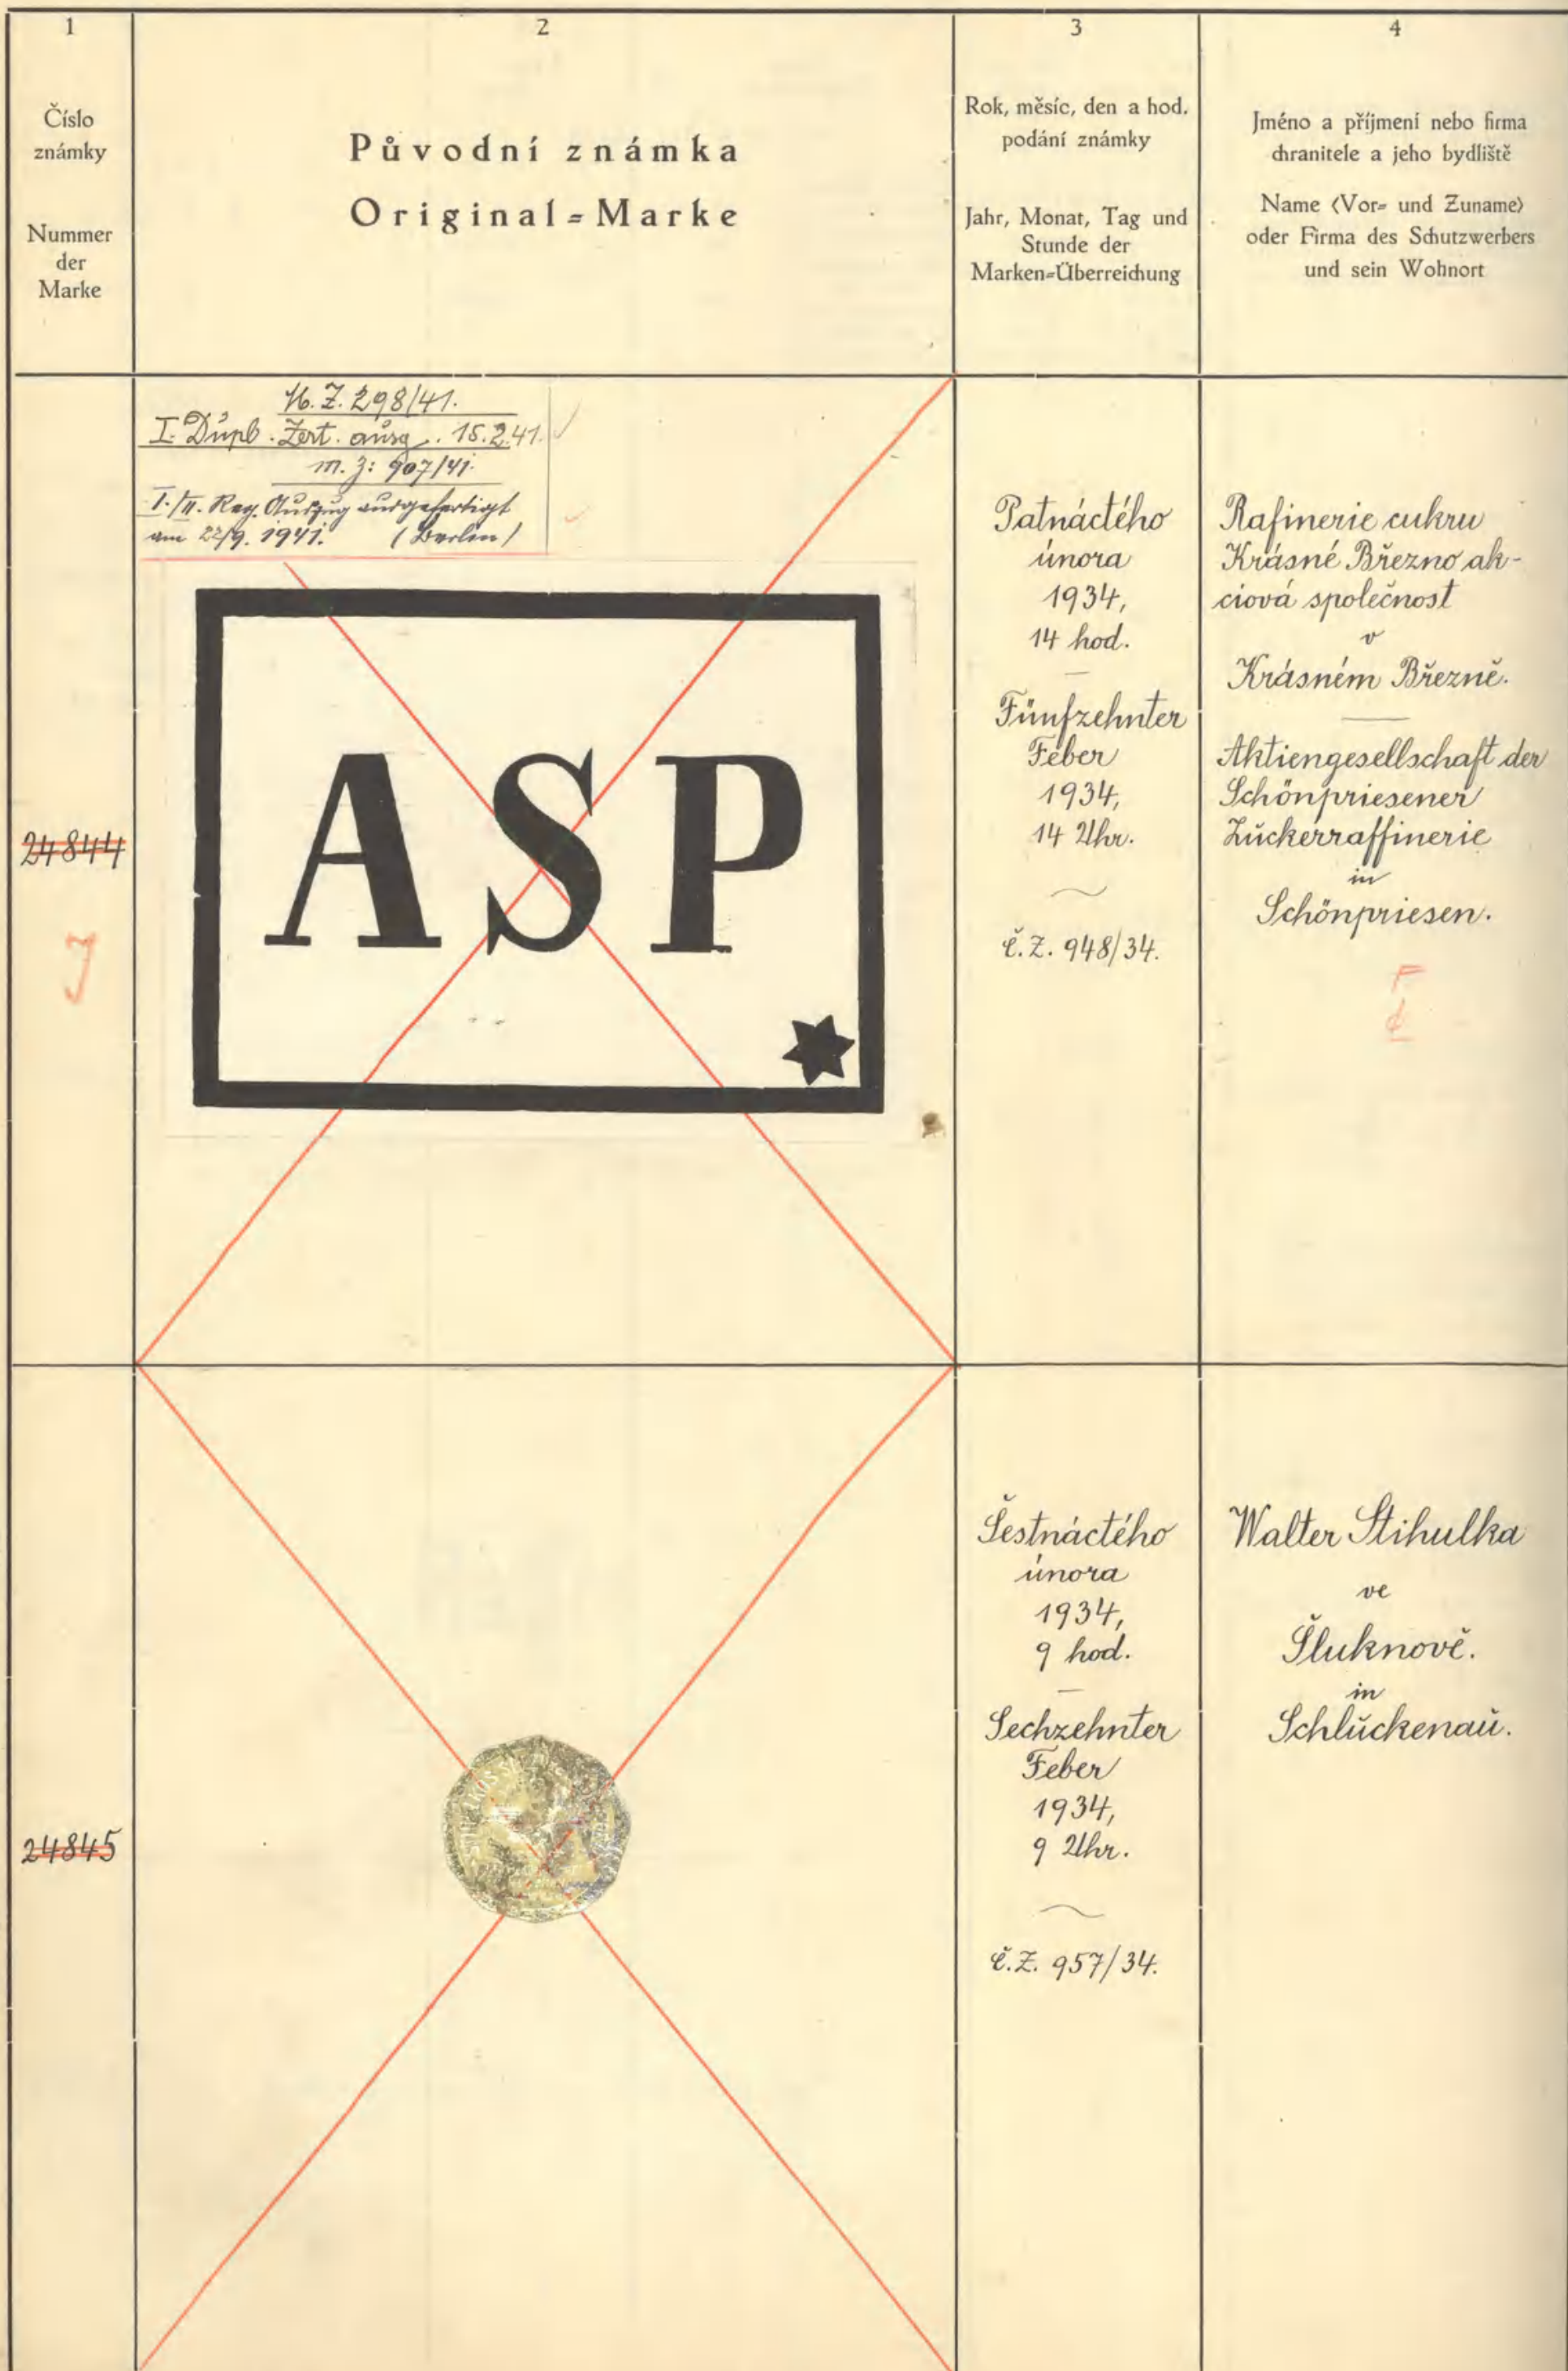 1
Číslo
známky
Nummer
der
Marke
2
Původní známka
Original=Marke
3
Rok, měsíc, den a hod.
podání známky
Jahr, Monat, Tag und
Stunde der
Marken=Überreichung
4
Jméno a příjmení nebo firma
chranitele a jeho bydliště
Name (Vor= und Zuname)
oder Firma des Schutzwerbers
und sein Wohnort
24844
J
298/41.
I. Dupl. Zert. ausg. 15.2.41.
M. Z: 907/41.
I./II. Reg. Auszug ausgefertigt
am 22/9. 1941. (Berlin)
ASP
Patnáctého
února
1934,
14 hod.
Fünfzehnter
Feber
1934,
14 Uhr.
Č.Z. 948/34.
Rafinerie cukru
Krásné Březno ak-
ciová společnost
v
Krásném Březně.
Aktiengesellschaft der
Schönpriesener
Zuckerraffinerie
in
Schönpriesen.
24845
Šestnáctého
února
1934,
9 hod.
Sechzehnter
Feber
1934,
9 Uhr.
Č.Z. 957/34.
Walter Stihulka
ve
Šluknově.
in
Schluckenau.